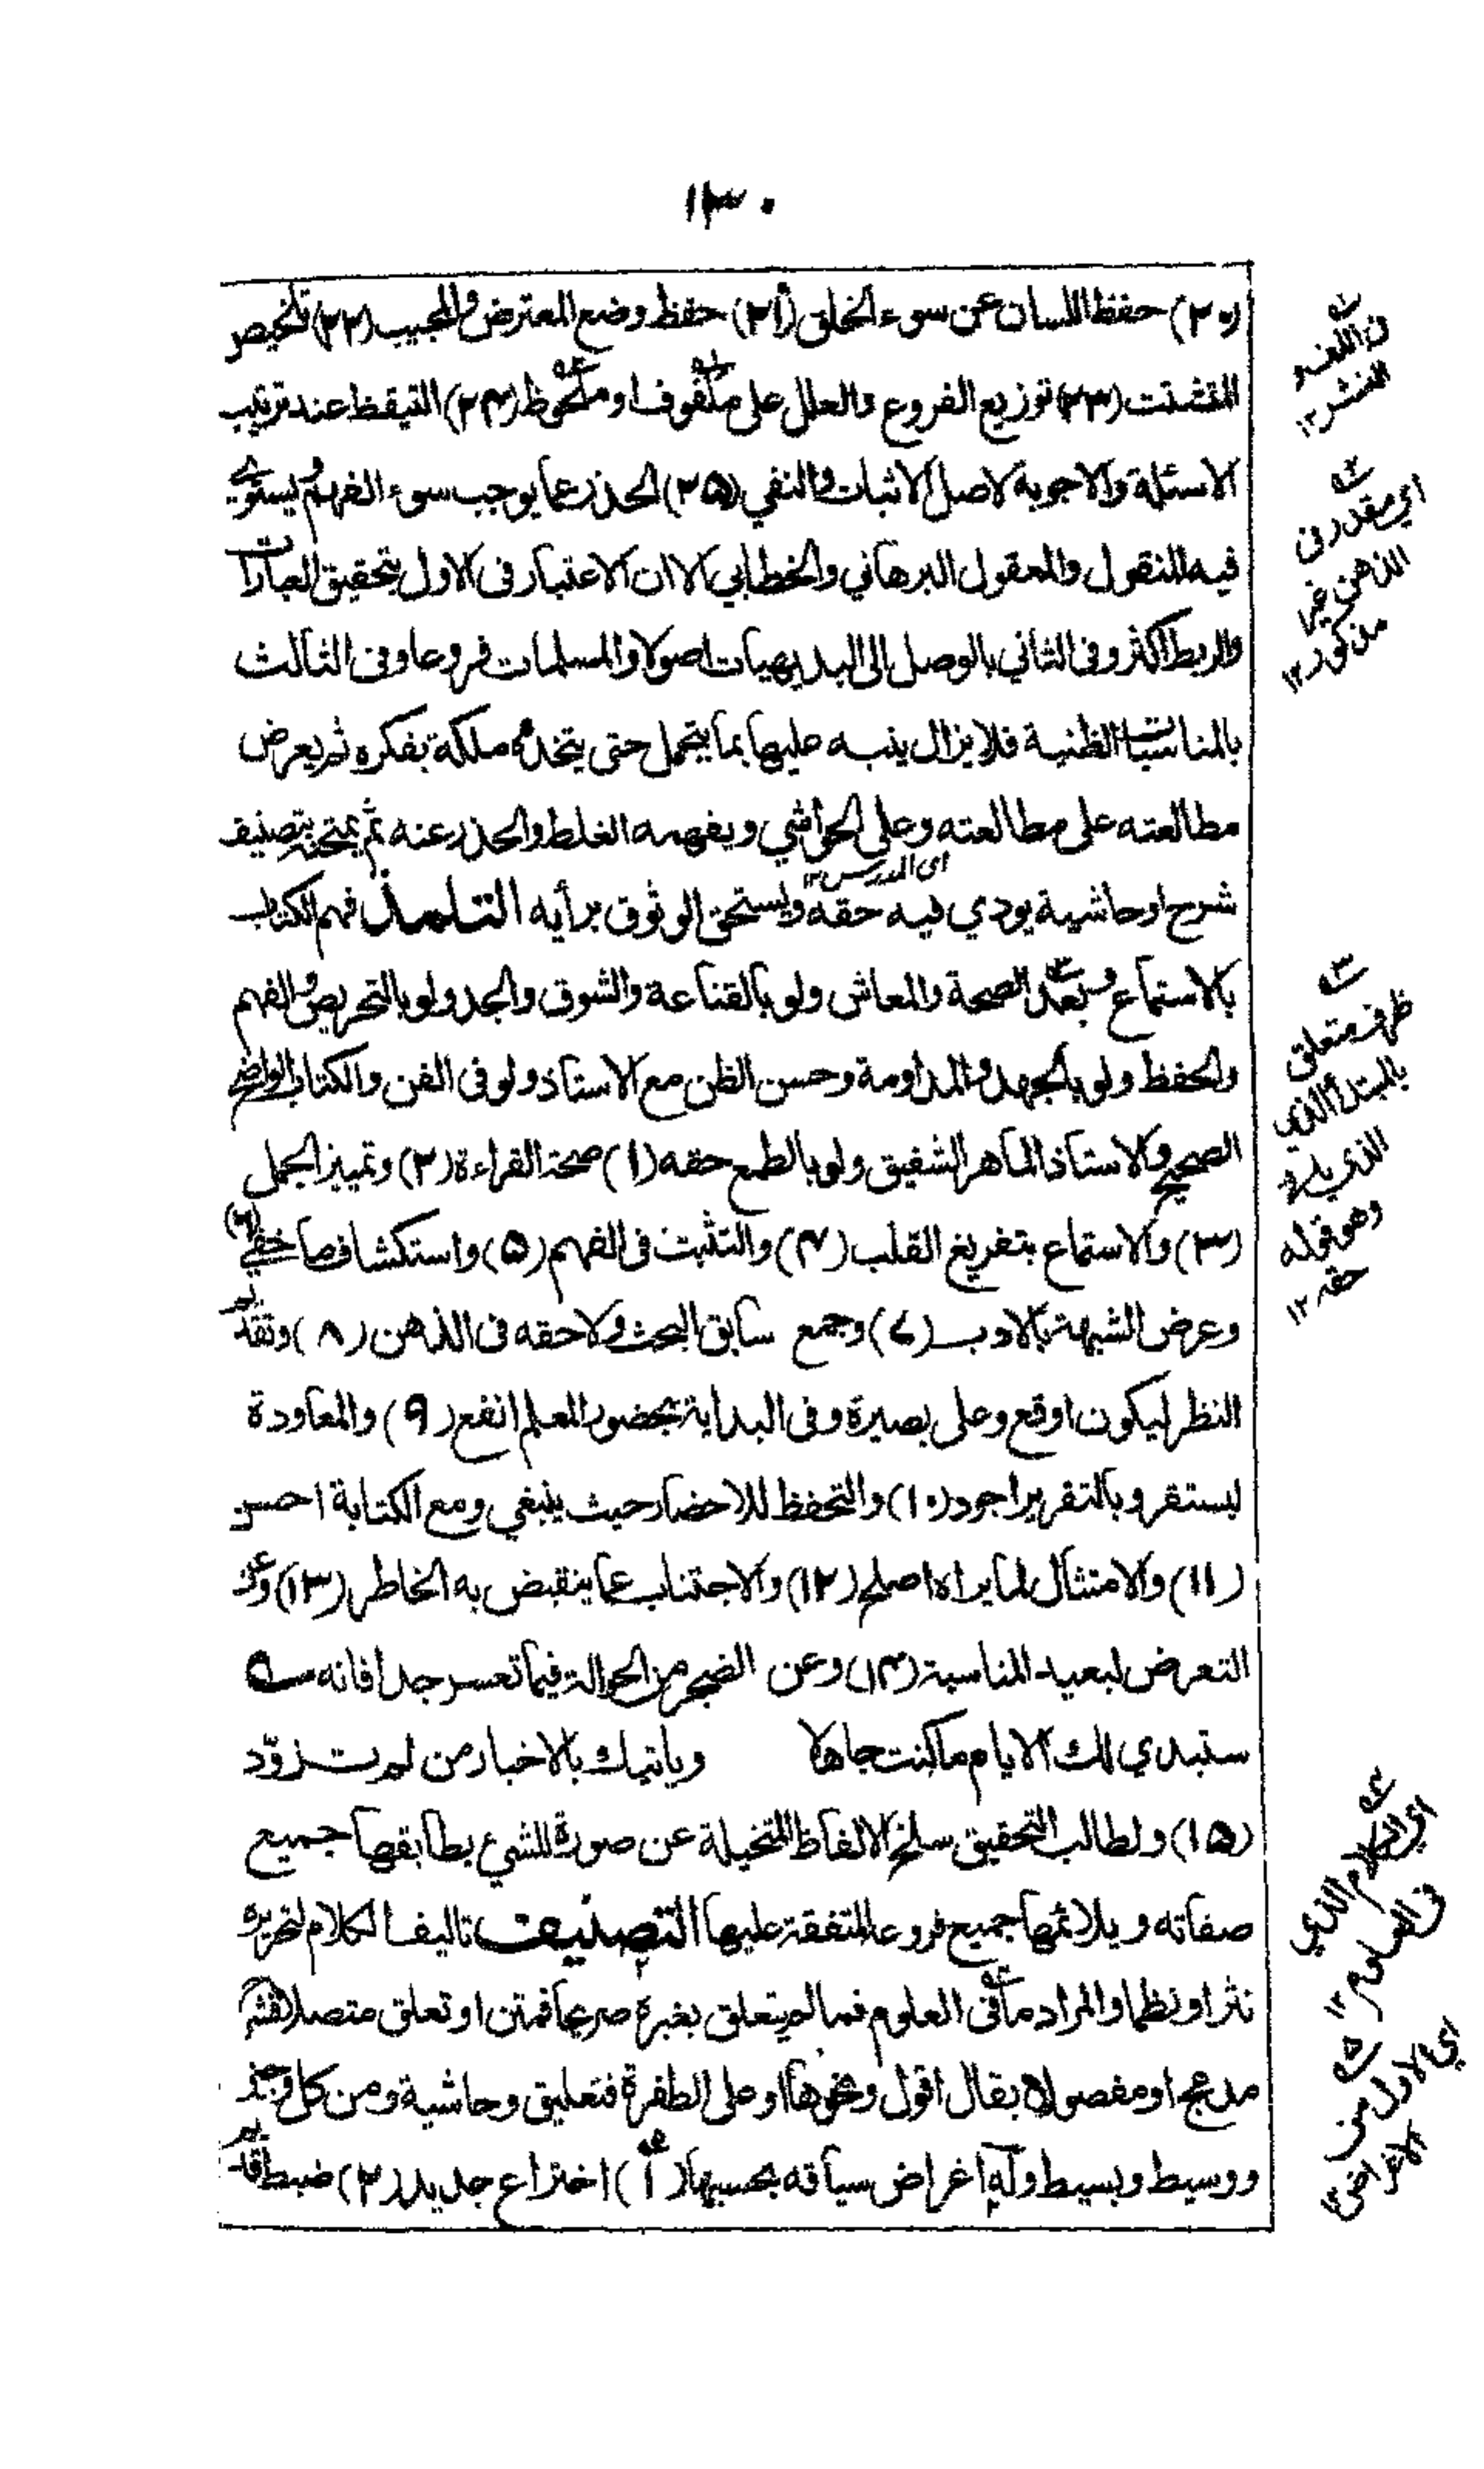 ١٣٠
(٢٠) حفظ اللسان عن سوء الخلق (٢١) حفظ وضع المعترض والمجيب (٢٢) تلخيص
المتشتت (٢٣) توزيع الفروع والعلل على ملفوف او ملحوظ (٢٤) التيقظ عند ترتيب
الاسئلة والاجوبة لاصل الاثبات والنفي (٢٥) الحذر عما يوجب سوء الفهم ويستوي
فيه المنقول والمعقول البرهاني والخطابي الا ان الاعتبار في الاول بتحقيق العبارات
والربط اكثر وفى الثاني بالوصل الى البديهيات اصولا والمسلمات فروعا وفى الثالث
بالمناسبات الظنية فلا يزال ينبه عليها بما يتحمل حتى يتخذه ملكة بفكره ثم يعرض
مطالعته على مطالعته وعلى الحواشي ويفهمه الغلط والحذر عنه ثم يمتحنه بتصنيف
شرح او حاشية يودي فيه حقه ويستحق الوثوق برأيه التلمذ فهم الكتاب
اى المدرس ١٢
بالاستماع وبعد الصحة والمعاش ولو بالقناعة والشوق والجد ولو بالتحريص والفهم
والحفظ ولو بالجهد والمداومة وحسن الظن مع الاستاذ ولو فى الفن والكتاب الواضح
الصحيح والاستاذ الماهر الشفيق ولو بالطمع حقه (١) صحة القراءة (٢) وتميز الجمل
(٣) والاستماع بتفريغ القلب (٤) والتثبت فى الفهم (٥) واستكشاف ما خفي (٦)
وعرض الشبهة بالادب (٧) وجمع سابق البحث ولاحقه فى الذهن (٨) وتقديم
النظر ليكون اوقع وعلى بصيرة وفى البداية بحضور المعلم انفع (٩) والمعاودة
ليستقر وبالتقرير اجود (١٠) والتحفظ للاحضار حيث ينبغي ومع الكتابة احسن
(١١) والامتثال لما يراه اصلح (١٢) والاجتناب عما ينقبض به الخاطر (١٣) وعن
التعرض لبعيد المناسبة (١٤) وعن الضجر من الحوالة فيما تعسر جدا فانه
ستبدي لك الايام ما كنت جاهلا وياتيك بالاخبار من لم تزوّد
(١٥) ولطالب التحقيق سلخ الالفاظ المتخيلة عن صورة للشيء يطابقها جميع
صفاته ويلائمها جميع فروعه المتفقة عليها التصنيف تاليف الكلام لتحريره
نثرا او نظما والمراد ما فى العلوم فما لم يتعلق بغيره صريحا فمتن او تعلق متصلا فشرح
مدمج او مفصولا بقال اقول ونحوها او على الطفرة فتعليق وحاشية ومن كل وجيز
ووسيط وبسيط وله اغراض سياقه بحسبها (١) اختراع جديد (٢) ضبط
اى مقدر فى
الذهن غير
مذكور ١٢
ظرف متعلق
بالمبتدأ الذي
وهو قوله
حقه ١٢
اي الكلام الذي
فى العلوم ١٢
اي الاول من
الاغراض ١٢